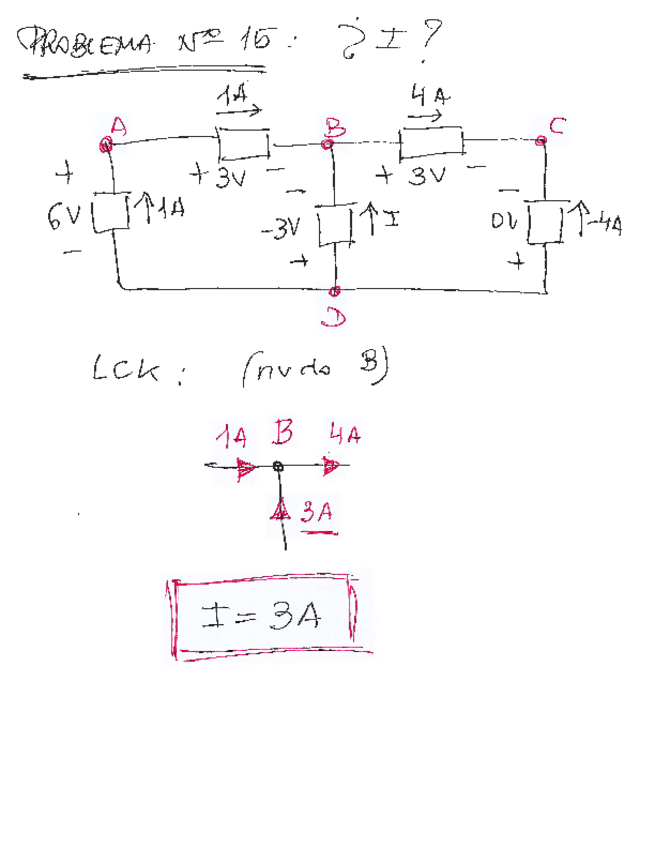 PROBLEMA Nº 15: ¿I?
1A 4A
A B C
+ + 3V - - + 3V - -
6V ↑1A -3V ↑I 0V ↑-4A
- + +
D
LCK: (nudo B)
1A B 4A
3A
I = 3A